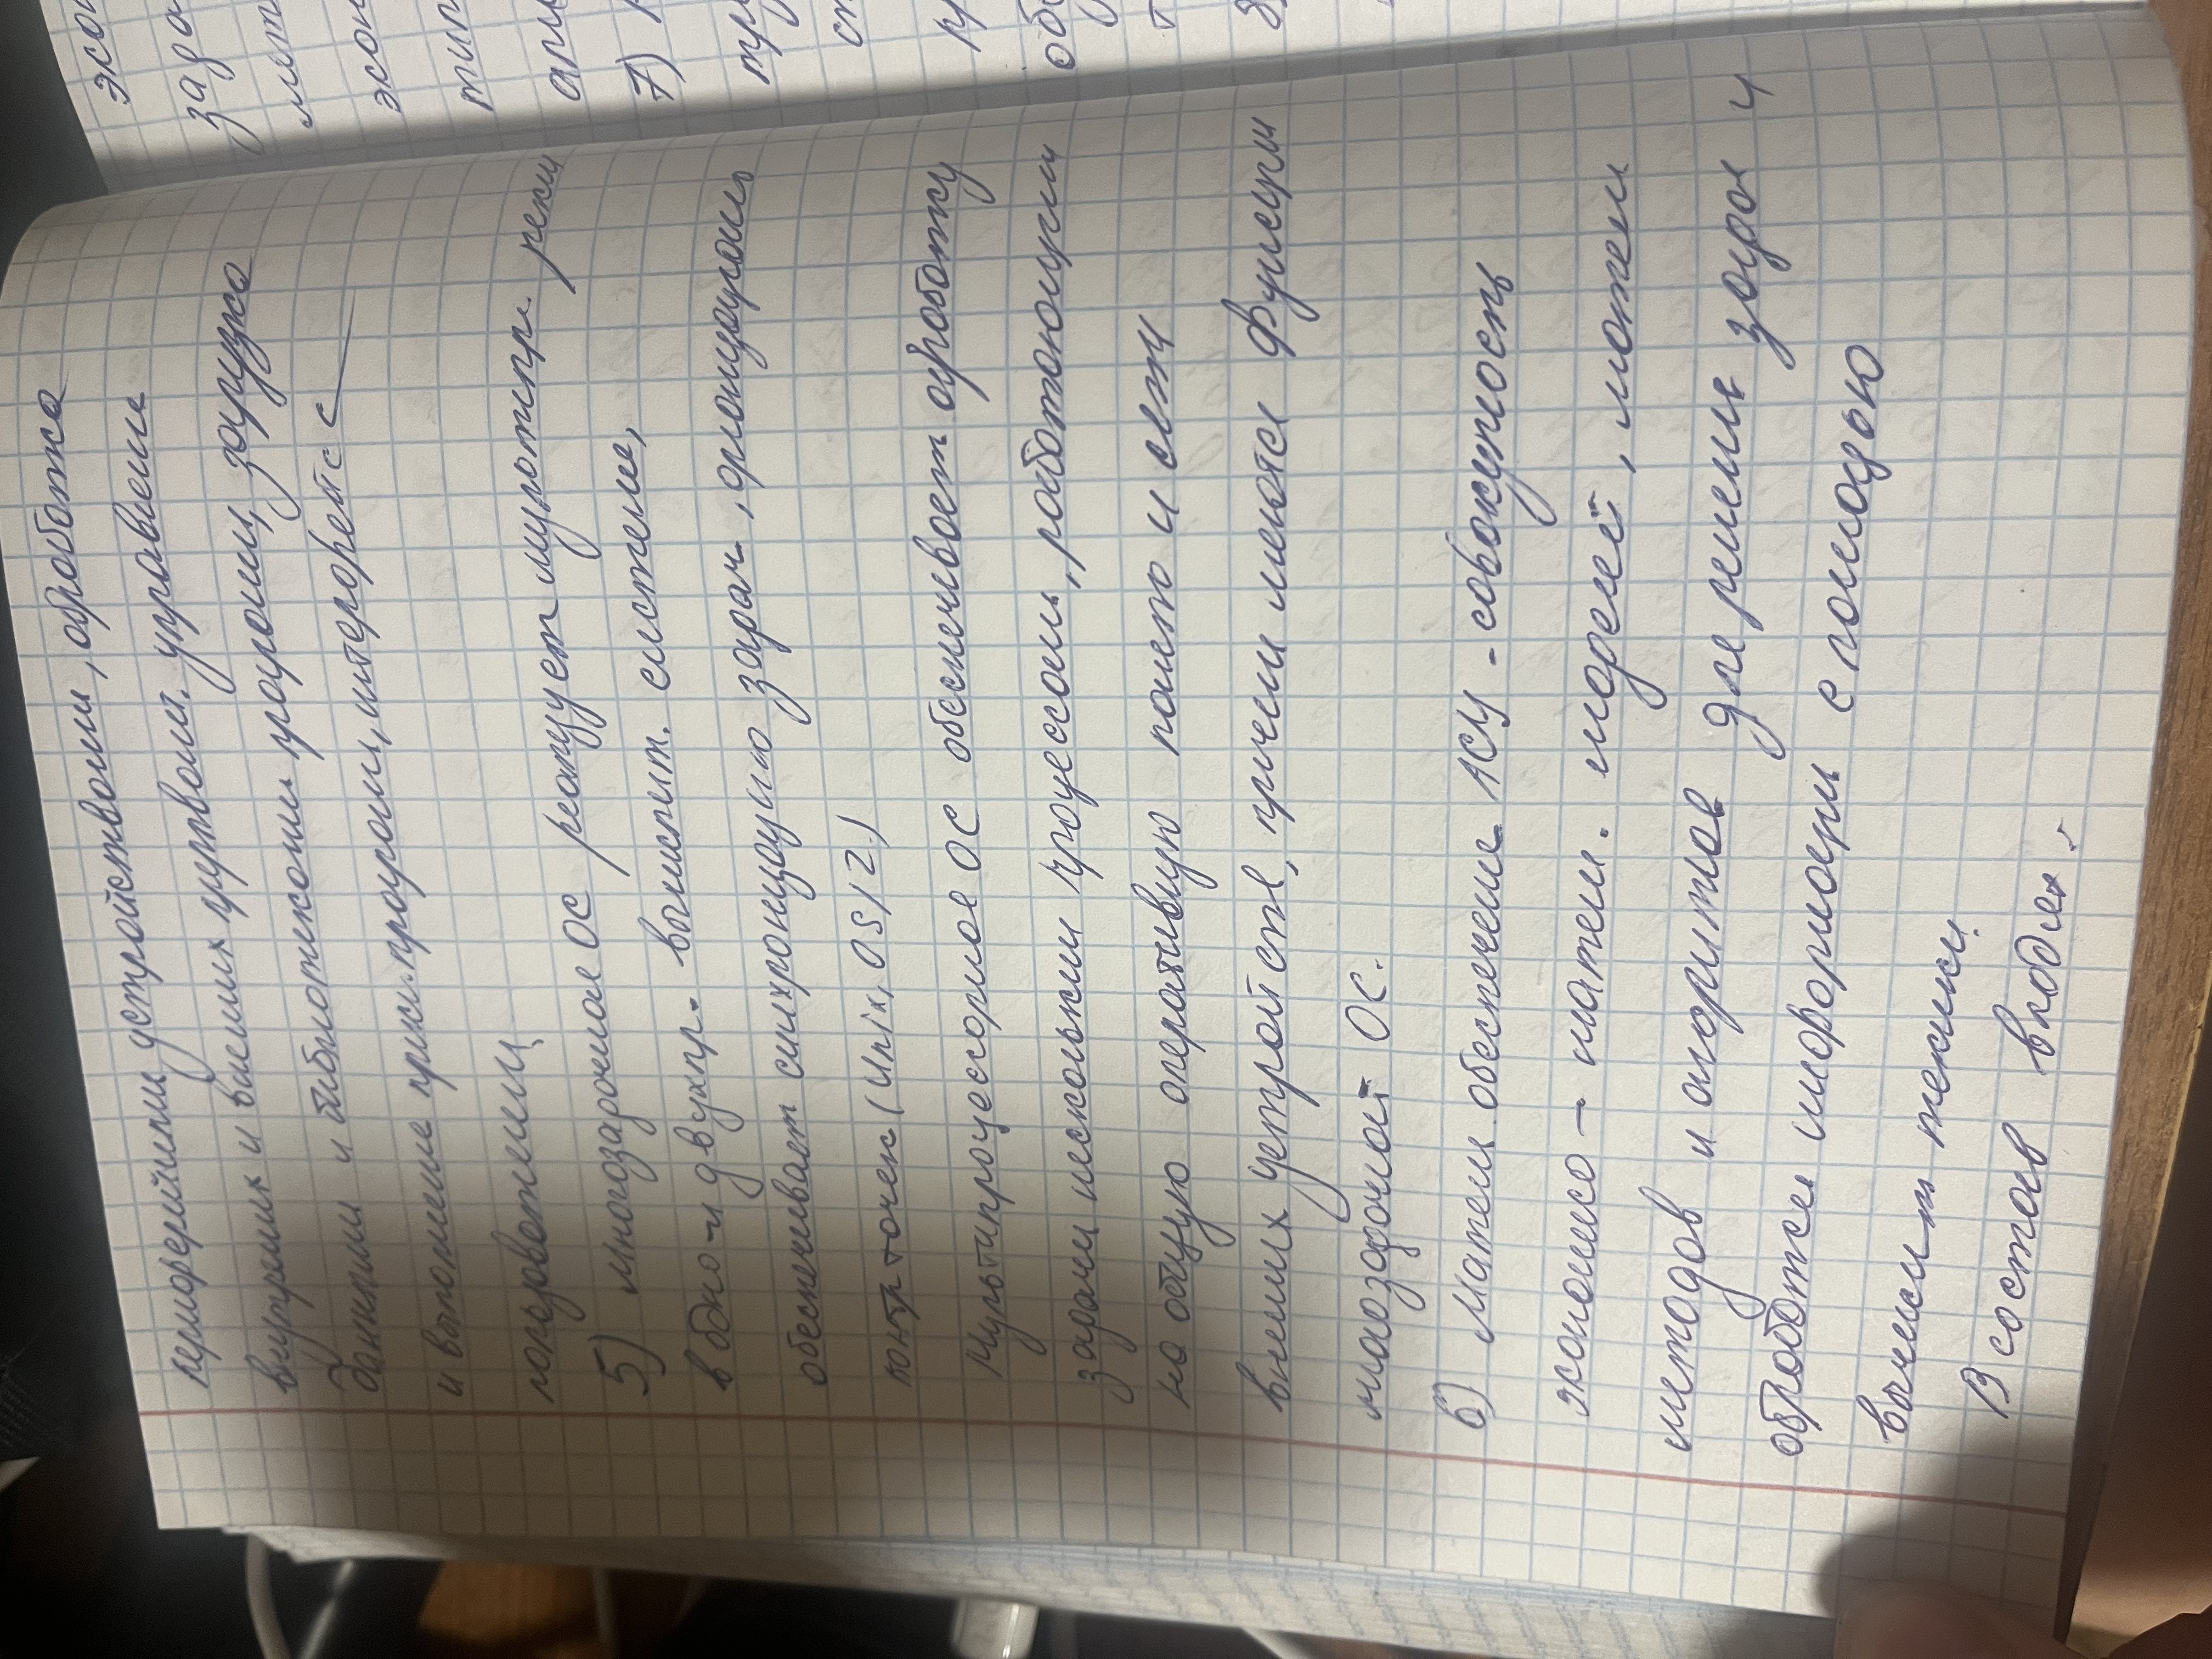 периферийными устройствами, обработка
внутрених и внешних прерывани. управлени
данными и библиотеками програми, загрузка
и выполнение прикл. програми, интерфейс с
пользователем.
5) многозадачные ОС реализует мультипр. режи
в одно-и двухпр. вычислит. системе,
обеспечивает синхронизацию задач, организацию
конт. точек (Unix, OS/2)
Мультипроцессорные ОС обеспечивает обработку
задачи несколькими процессоми, работающими
на общую оперативную память и сети
внешних устройств, причем имеются функции
многозадачной ОС.
6) Матем обеспечение АСУ - совокупность
экономико - матем. моделей, матем
методов и алгоритмов для решен задач и
обработки информации с помощью
вычислит техники.
В состав входят
эко
задо
мет
экон
тип
алг
7)
пр
ст
обо
8